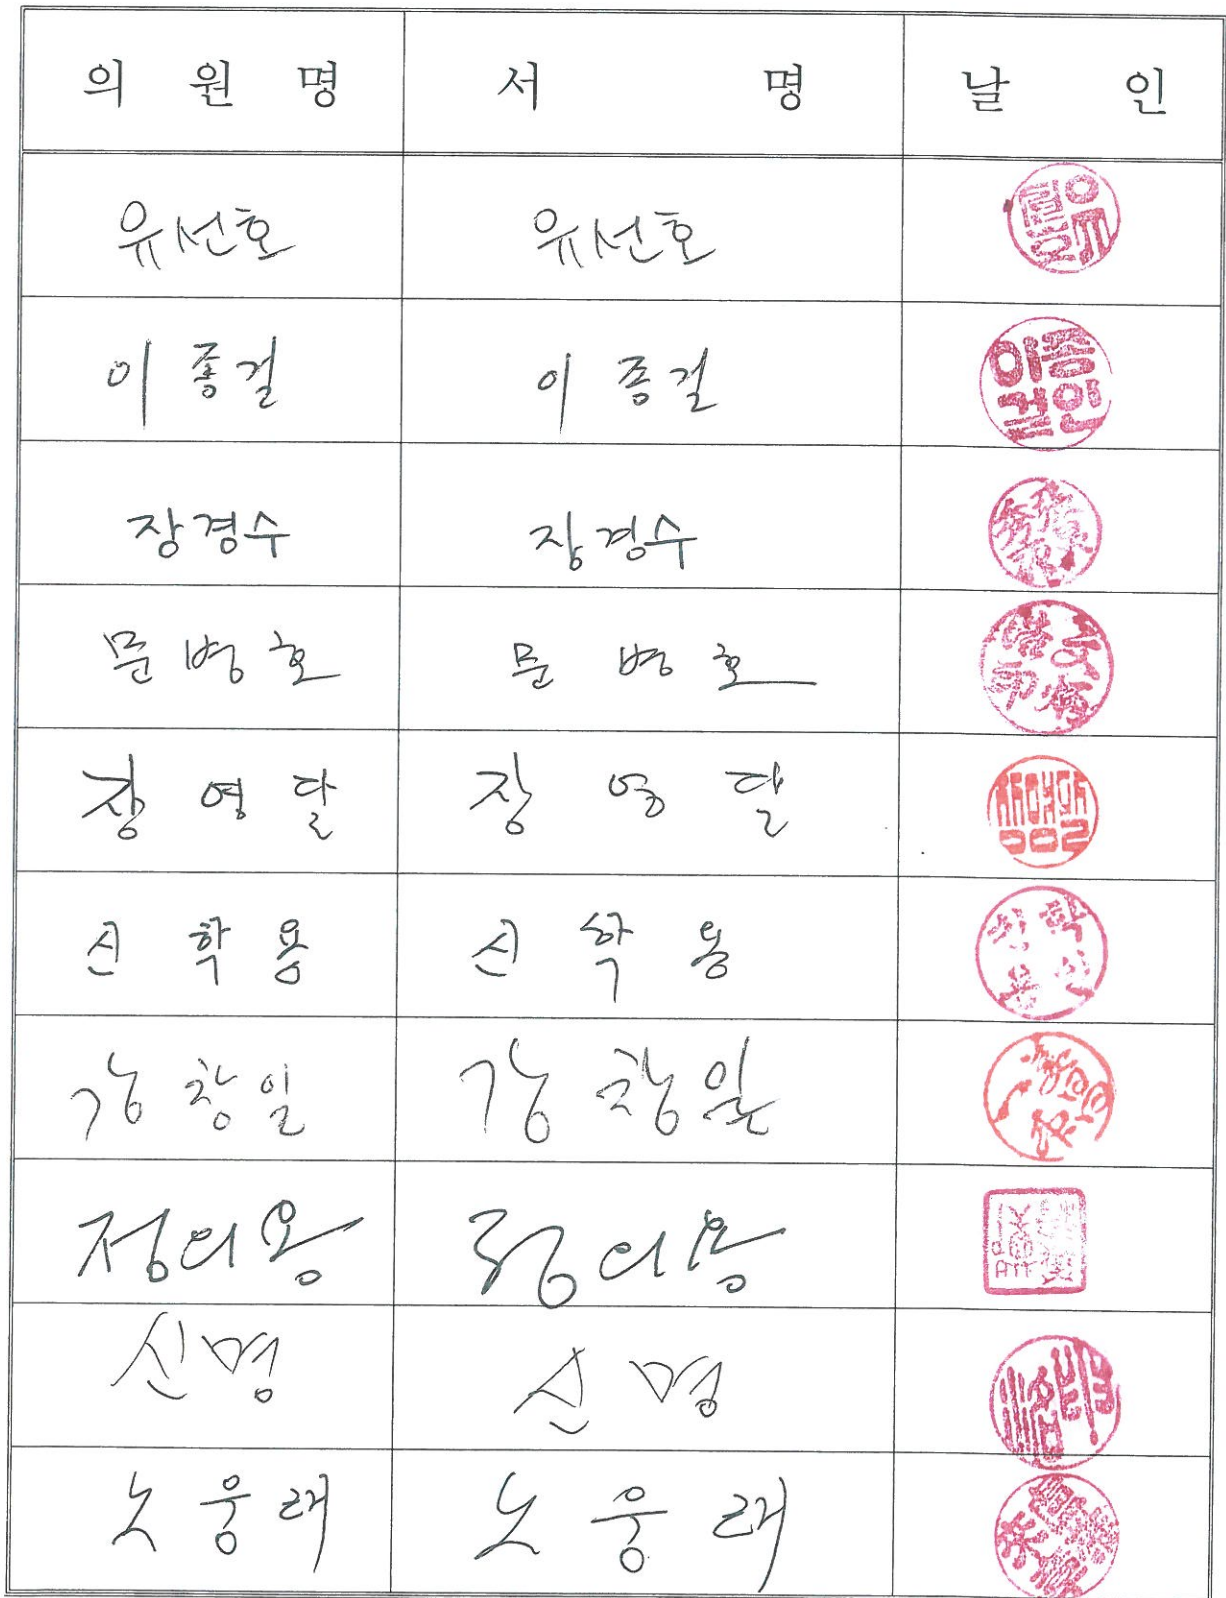 의 원 명 서 명 날 인
유선호 유선호
이종걸 이종걸 이종걸인
장경수 장경수
문병호 문병호
장영달 장영달
신학용 신학용 신학용인
강창일 강창일
정의용 정의용
신명 신명
노웅래 노웅래